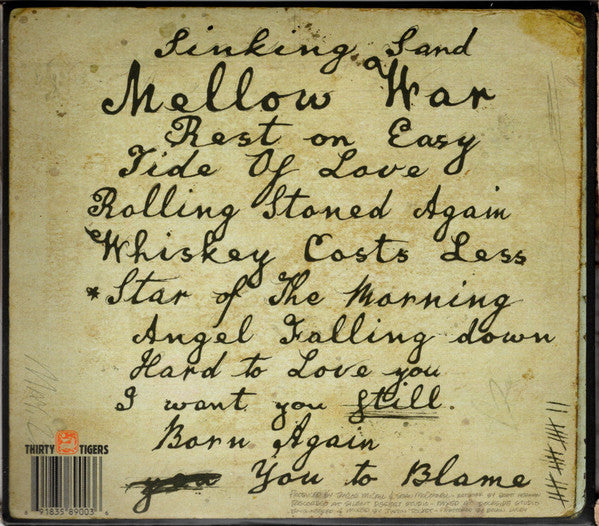 Sinking Sand
Mellow War
Rest on Easy
Tide Of Love
Rolling Stoned Again
Whiskey Costs Less
*Star of The Morning
Angel Falling down
Hard to Love you
I want you still.
Born Again
you You to Blame
THIRTY TIGERS
91835 89003 6